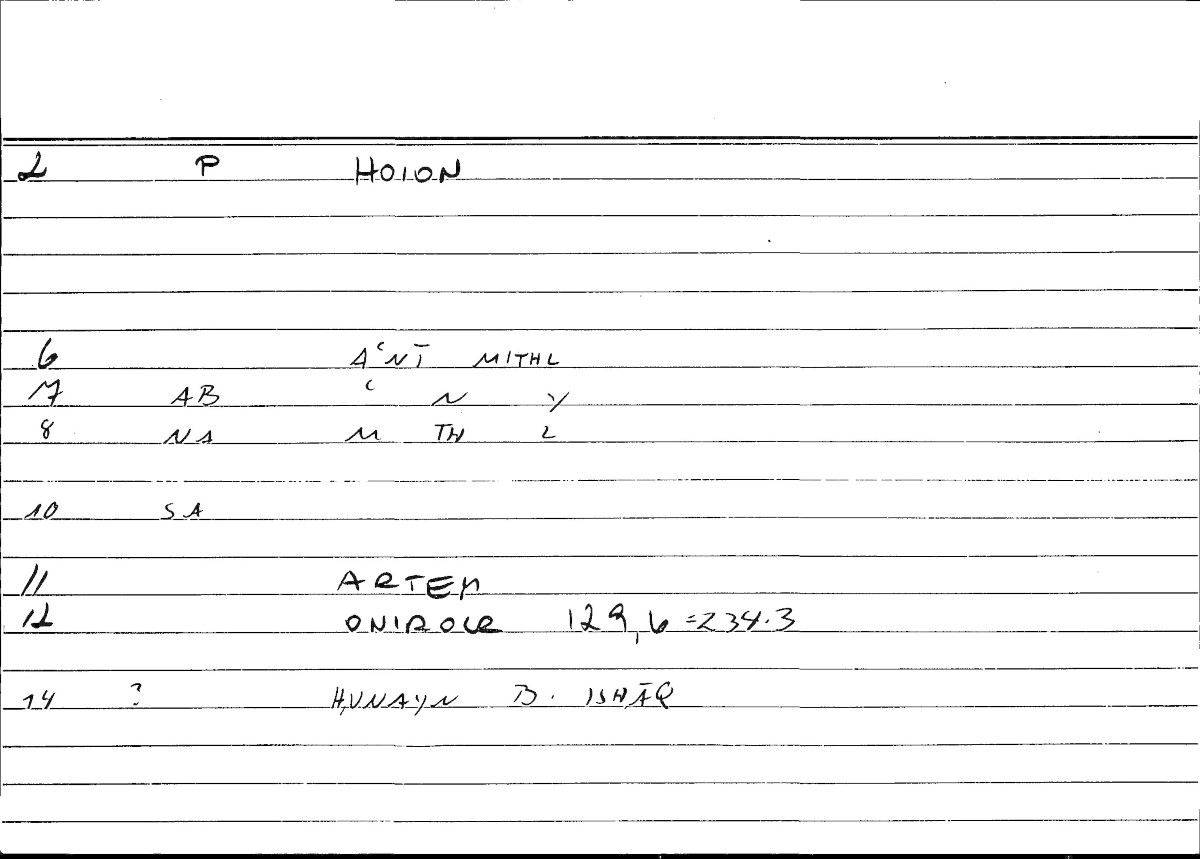 2 P HOION
6 AʿNĪ MITHL
7 AB ʿ N Y
8 NA M TH L
10 SA
11 ARTEM
12 ONIROCR 129,6 = 234.3
14 ? ḤUNAYN B. ISḤĀQ